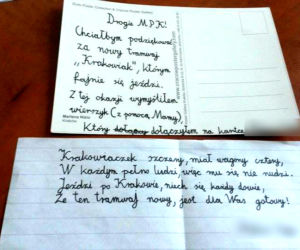 Drogie M.P.K!
Chciałbym podziękować
za nowy tramwaj
,,Krakowiak", którym
fajnie się jeździ.
Z tej okazji wymyśliłem
wierszyk (z pomocą Mamy),
Który dołączyłem na kartce
Krakowiaczek szczery, miał wagony cztery,
W każdym pełno ludzi, więc mu się nie nudzi.
Jeździ po Krakowie, niech się każdy dowie,
Że ten tramwaj nowy, jest dla Was gotowy!